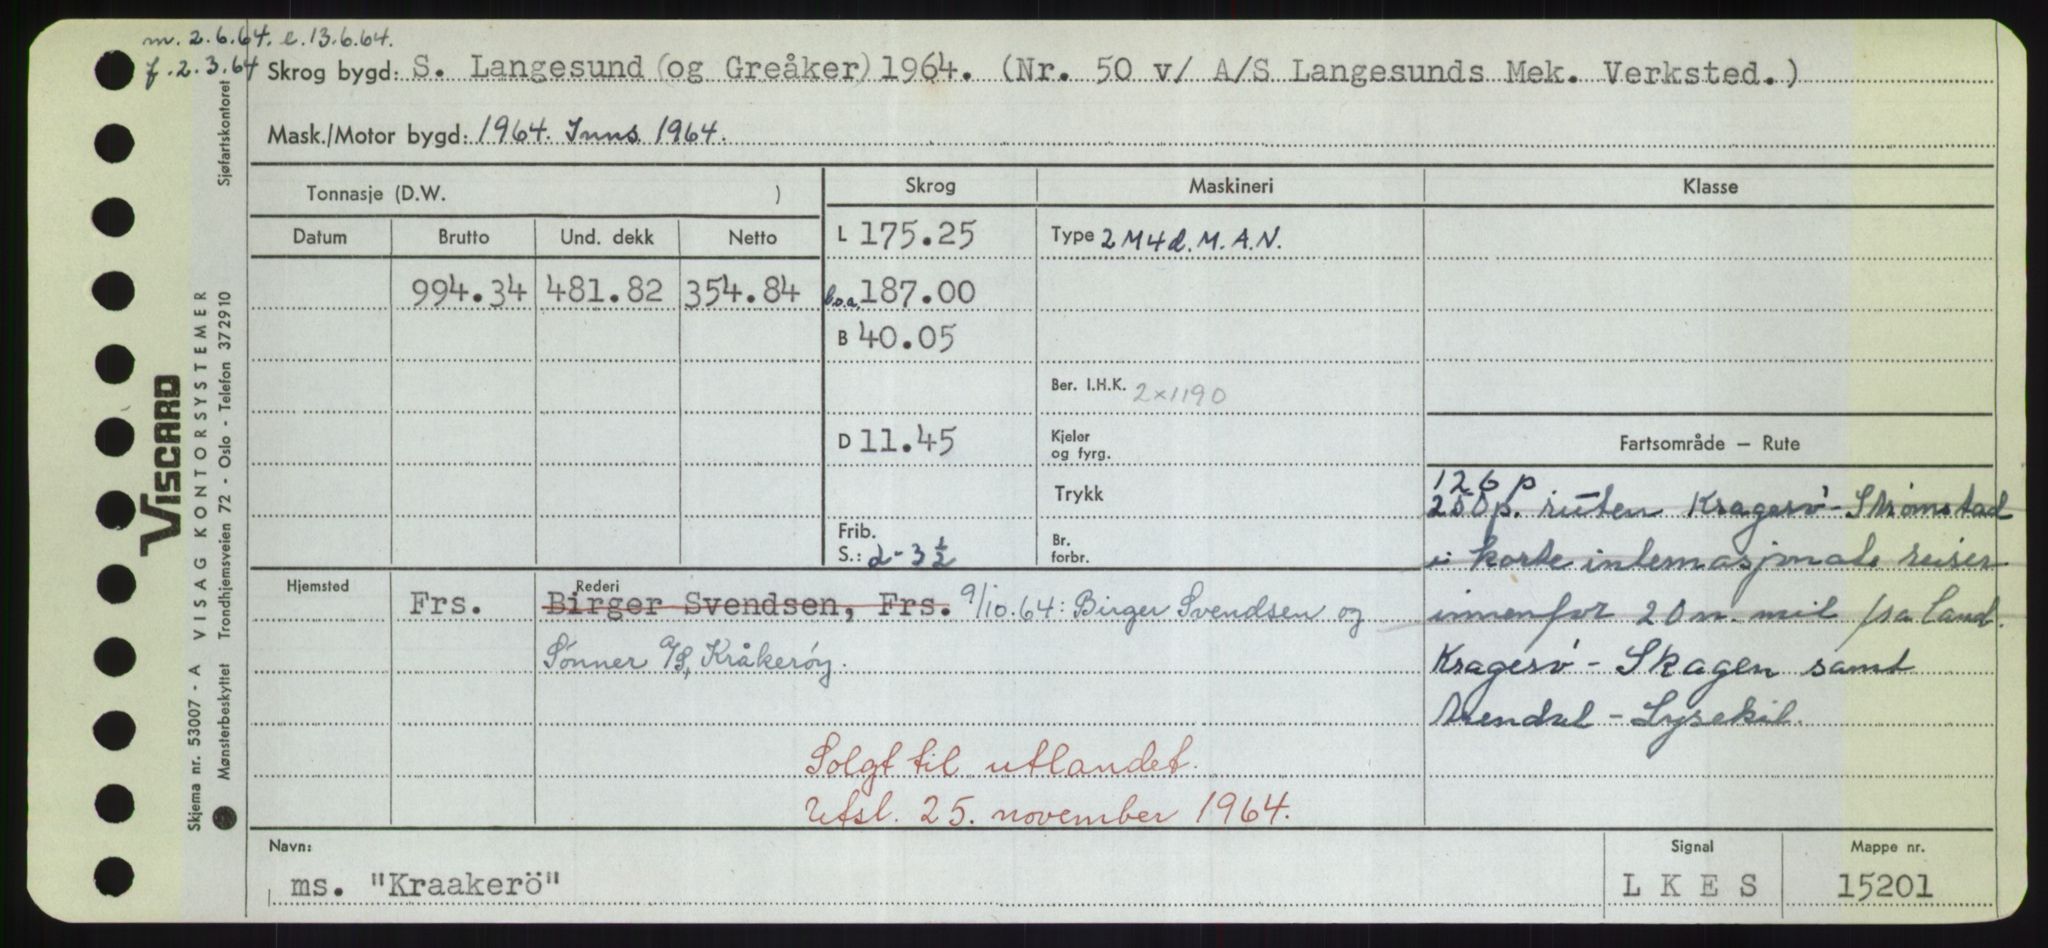 m. 2.6.64. e. 13.6.64.
f. 2.3.64 Skrog bygd: S. Langesund (og Greåker) 1964. (Nr. 50 v/ A/S Langesunds Mek. Verksted.)
Mask./Motor bygd: 1964. Inns. 1964.
Tonnasje (D.W. )
Skrog
Maskineri
Klasse
Datum Brutto Und. dekk Netto
994.34 481.82 354.84
L 175.25
l.o.a. 187.00
B 40.05
D 11.45
Frib.
S.: d - 3 1/2
Type 2M4d. M.A.N.
Ber. I.H.K. 2x1190
Kjeler
og fyrg.
Trykk
Br.
forbr.
Fartsområde — Rute
126 p
250 p. ruten Kragerø - Strømstad
i korte internasjonale reiser
innenfor 20 n. mil fra land.
Kragerø - Skagen samt
Arendal - Lysekil.
Hjemsted Rederi
Frs. Birger Svendsen, Frs. 9/10.64: Birger Svendsen og
Sønner A/S, Kråkerøy.
Solgt til utlandet.
Utsl. 25. november 1964.
Navn:
ms. "Kraakerö"
Signal
L K E S
Mappe nr.
15201
VISCARD
Skjema nr. 53007 - A VISAG KONTORSYSTEMER
Mønsterbeskyttet Trondhjemsveien 72 - Oslo - Telefon 372910
Sjøfartskontoret